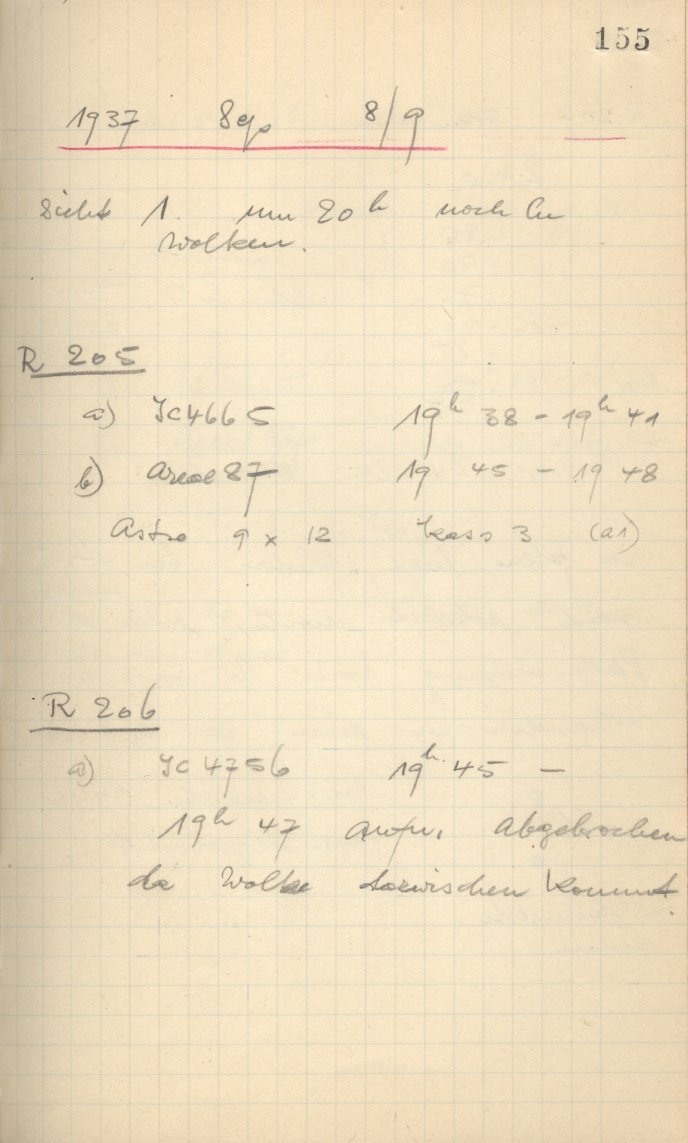 155
1937 Sep. 8/9
Sicht 1. um 20h noch Cu
Wolken.
R 205
a) JC4665 19h 38 - 19h 41
b) 87 19 45 - 19 48
Astro 9 x 12 Kass 3 (a1)
R 206
a) JC 4756 19h 45 -
19h 47 Aufn. abgebrochen
da Wolke dazwischen kommt.